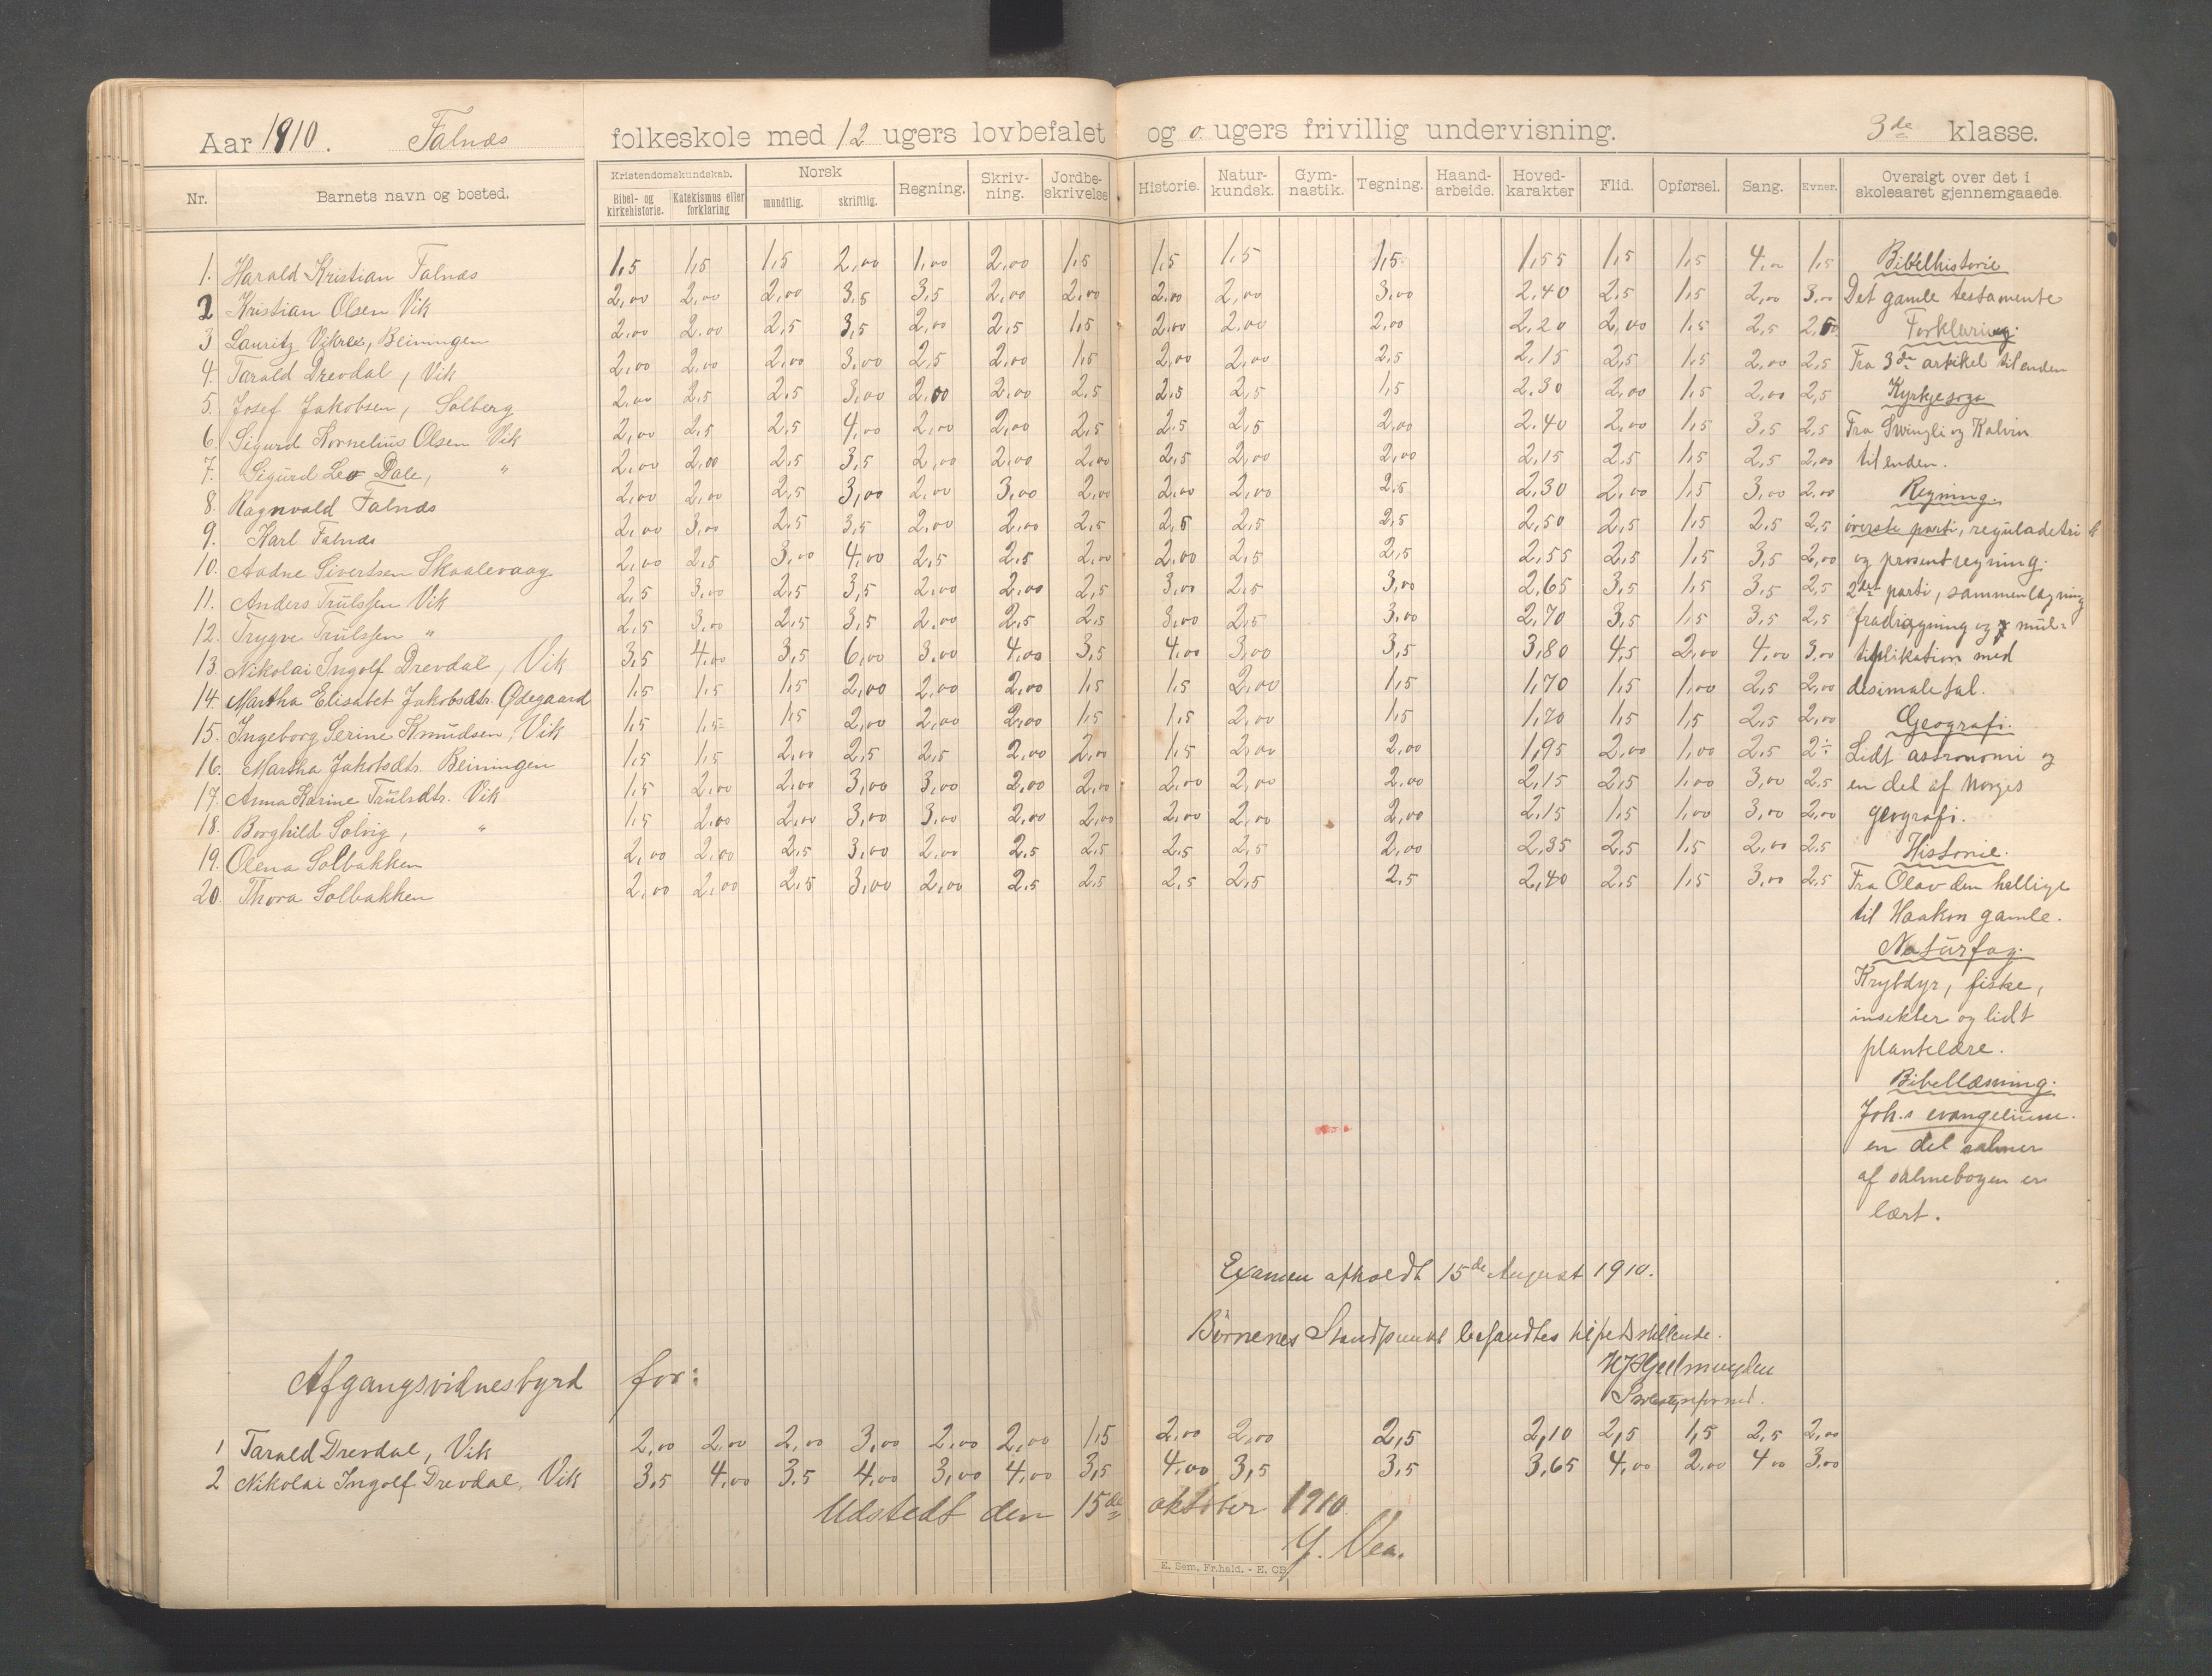 Aar 1910. Falnæs folkeskole med 12 ugers lovbefalet og 0 ugers frivillig undervisning. 3de klasse.
Nr. Barnets navn og bosted. Kristendomskundskab. Bibel- og kirkehistorie. Katekismus eller forklaring Norsk mundtlig. skriftlig. Regning. Skriv-ning. Jordbe-skrivelse Historie. Natur-kundsk. Gym-nastik. Tegning. Haand-arbeide. Hoved-karakter Flid. Opførsel. Sang. Evner. Oversigt over det i skoleaaret gjennemgaaede.
1. Harald Kristian Falnæs 1,5 1,5 1,5 2,00 1,00 2,00 1,5 1,5 1,5 1,5 1,55 1,5 1,5 4,00 1,5 Bibelhistorie
2 Kristian Olsen Vik 2,00 2,00 2,00 3,5 3,5 2,00 2,00 2,00 2,00 3,00 2,40 2,5 1,5 2,00 3,00 Det gamle testamente
3 Lauritz Vikre, Beiningen 2,00 2,00 2,5 3,5 2,00 2,5 1,5 2,00 2,00 2,00 2,20 2,00 1,5 2,5 2,50 Forklaring.
4. Tarald Drevdal, Vik 2,00 2,00 2,00 3,00 2,5 2,00 1,5 2,00 2,00 2,5 2,15 2,5 1,5 2,00 2,5 Fra 3de artikel til enden
5. Josef Jakobsen, Solberg 2,00 2,5 2,5 3,00 2,00 2,00 2,5 2,5 2,5 1,5 2,30 2,00 1,5 2,00 2,5 Kyrkjesoga
6. Sigurd Kornelius Olsen Vik 2,00 2,5 2,5 4,00 2,00 2,00 2,5 2,5 2,5 2,00 2,40 2,00 1,5 3,5 2,5 Fra Swingli og Kalvin
7. Sigurd Leo Dale, " 2,00 2,00 2,5 3,5 2,00 2,00 2,00 2,5 2,00 2,00 2,15 2,5 1,5 2,5 2,00 til enden.
8. Ragnvald Falnæs 2,00 2,00 2,5 3,00 2,00 3,00 2,00 2,00 2,00 2,5 2,30 2,00 1,5 3,00 2,00 Regning.
9. Karl Falnæs 2,00 3,00 2,5 3,5 2,00 2,00 2,5 2,5 2,5 2,5 2,50 2,5 1,5 2,5 2,5 øverste parti, reguladetri
10. Aadne Sivertsen Skaalevaag 2,00 2,5 3,00 4,00 2,5 2,5 2,00 2,00 2,5 2,5 2,55 2,5 1,5 3,5 2,00 og prosentregning.
11. Anders Trulssen Vik 2,5 3,00 2,5 3,5 2,00 2,00 2,5 3,00 2,5 3,00 2,65 3,5 1,5 3,5 2,5 2det parti, sammenlægning
12. Trygve Trulssen " 2,5 3,00 2,5 3,5 2,00 2,5 2,5 3,00 2,5 3,00 2,70 3,5 1,5 3,5 2,5 fradragning og mul-
13. Nikolai Ingolf Drevdal, Vik 3,5 4,00 3,5 6,00 3,00 4,00 3,5 4,00 3,00 3,5 3,80 4,5 2,00 4,00 3,00 tiplikation med
14. Martha Elisabet Jakobsdtr. Ødegaard 1,5 1,5 1,5 2,00 2,00 2,00 1,5 1,5 2,00 1,5 1,70 1,5 1,00 2,5 2,00 desimaletal.
15. Ingeborg Serine Knudsen, Vik 1,5 1,5 1,5 2,00 2,00 2,00 1,5 1,5 2,00 1,5 1,70 1,5 1,5 2,5 2,00 Geografi.
16. Martha Jakobsdtr. Beiningen 1,5 1,5 2,00 2,5 2,5 2,00 2,00 1,5 2,00 2,00 1,95 2,00 1,00 2,5 2÷ Lidt astronomi og
17. Anna Karine Trulsdtr. Vik 1,5 2,00 2,00 3,00 3,00 2,00 2,00 2,00 2,00 2,00 2,15 2,5 1,00 3,00 2,5 en del af Norges
18. Borghild Solvig, " 1,5 2,00 2,00 3,00 3,00 2,00 2,5 2,00 2,00 2,00 2,15 1,5 1,00 3,00 2,00 geografi.
19. Olena Solbakken 2,00 2,00 2,5 3,00 2,00 2,5 2,5 2,5 2,5 2,00 2,35 2,5 1,5 2,00 2,5 Historie.
20. Thora Solbakken 2,00 2,00 2,5 3,00 2,00 2,5 2,5 2,5 2,5 2,5 2,40 2,5 1,5 3,00 2,5 Fra Olav den hellige
til Haakon gamle.
Naturfag.
Krybdyr, fiske,
insekter og lidt
plantelære.
Bibellæsning.
Joh.s evangelium.
en del salmer
af salmebogen er
lært.
Examen afholdt 15de August 1910.
Børnenes Standpunkt befandtes tilfredsstillende.
HJGeelmuyden
Afgangsvidnesbyrd for:
1 Tarald Drevdal, Vik 2,00 2,00 2,00 3,00 2,00 2,00 1,5 2,00 2,00 2,5 2,10 2,5 1,5 2,5 2,00
2 Nikolai Ingolf Drevdal, Vik 3,5 4,00 3,5 4,00 3,00 4,00 3,5 4,00 3,5 3,5 3,65 4,00 2,00 4,00 3,00
Udstedt den 15de oktober 1910
Y. Vea.
E. Sem, Fr.hald. - E. OB